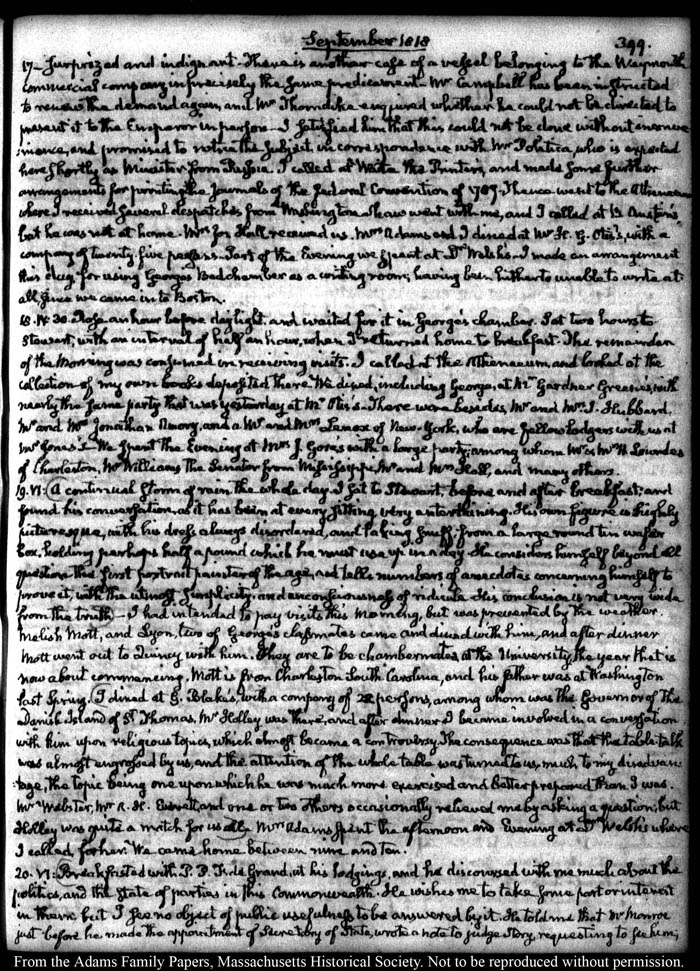 September 1818
399.
17– Surprized and indignant– There is another case of a vessel belonging to the Weymouth
commercial company in precisely the same predicament. Mr Campbell has been instructed
to renew the demand again, and Mr Thorndike enquired whether he could not be directed to
present it to the Emperor in person– I satisfied him that this could not be done without inconve-
nience, and promised to renew the subject, in correspondence with Mr Poletica, who is expected
here shortly as Minister from Russia. I called at Waite the Printer's, and made some further
arrangements for printing the Journals of the federal Convention of 1787– Thence went to the Athenaeum
where I received several despatches from Washington– Shaw went with me, and I called at B. Austin's,
but he was not at home– Mrs Jos. Hall received us. Mrs Adams and I dined at Mr H. G. Otis's, with a
company of twenty five persons– Part of the Evening we spent at Dr Welsh's– I made an arrangement
this day for using George's Bedchamber as a writing room; having been hitherto unable to write at
all, since we came in to Boston.
18. IV: 30. Rose an hour before daylight, and waited for it in George's chamber. Sat two hours to
Stewart, with an interval of half an hour, when I returned home to breakfast. The remainder
of the Morning was consumed in receiving visits. I called at the Athenaeum, and looked at the
collection of my own books deposited there. We dined, including George, at Mr Gardner Greene's, with
nearly the same party that was yesterday at Mr Otis's– There were besides, Mr and Mrs J. Hubbard,
Mr and Mrs Jonathan Amory, and a Mr and Mrs Lenox of New-York, who are fellow lodgers with us at
Mrs Jones's– We spent the Evening at Mrs J. Gore's with a large party; among whom Mr & Mrs Lowndes
of Charleston, Mr Williams the Senator from Mississippi, Mr and Mrs Hall, and many others.
19. VI: A continual storm of rain the whole day. I sat to Stewart, before and after breakfast; and
found his conversation, as it has been at every sitting, very entertaining. His own figure is highly
picturesque, with his dress always disordered, and taking snuff from a large round tin wafer
box, holding perhaps half a pound which he must use up in a day. He considers himself beyond all
question the first portrait painter of the age, and tells numbers of anecdotes concerning himself to
prove it, with the utmost simplicity, and unconsciousness of ridicule. His conclusion is not very wide
from the truth– I had intended to pay visits this Morning, but was prevented by the weather.
Mott, and Lyon, two of George's classmates came and dined with him, and after dinner
Mott went out to Quincy with him. They are to be chambermates at the University, the year that is
now about commencing. Mott is from Charleston South Carolina, and his father was at Washington
last Spring. I dined at G. Blake's, with a company of 22 persons, among whom was the Governor of the
Danish Island of St Thomas. Mr Holley was there, and after dinner I became involved in a conversation
with him upon religious topics, which almost became a controversy. The consequence was that the table-talk
was almost engrossed by us, and the attention of the whole table was turned to us, much to my disadvan-
tage, the topic being one upon which he was much more exercised and better prepared than I was.
Mr Webster, Mr A. H. Everett, and one or two others occasionally relieved me by asking a question; but
Holley was quite a match for us all. Mrs Adams spent the afternoon and Evening at Dr Welsh's where
I called for her. We came home between nine and ten.
20. VI: Breakfasted with P. P. F. de Grand, at his lodgings, and he discoursed with me much about the
politics, and the state of parties in this Commonwealth. He wishes me to take some part or interest
in them; but I see no object of public usefulness to be answered by it. He told me that Mr Monroe
just before he made the appointment of Secretary of State, wrote a note to judge Story, requesting to see him;
From the Adams Family Papers, Massachusetts Historical Society. Not to be reproduced without permission.